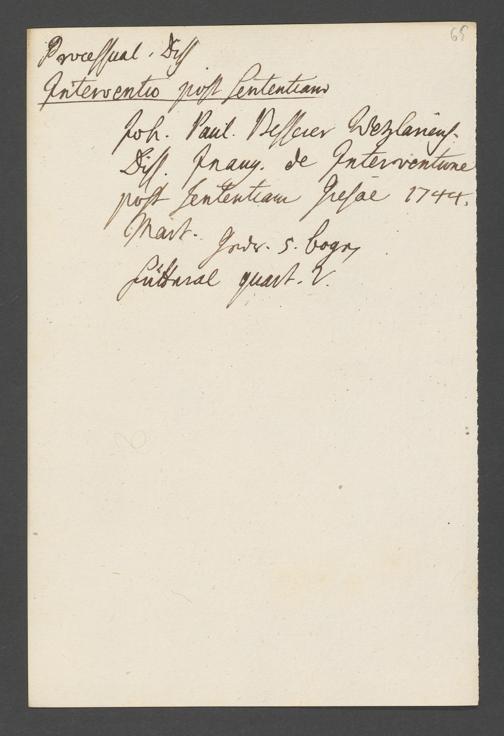 65
Processual. Diss
Interventio post Sententiam
Joh. Paul. Besserer Wetzlariens.
Diss. Inaug. de Interventione
post Sententiam Gießae 1744.
Mart. 5. bogn
quart.